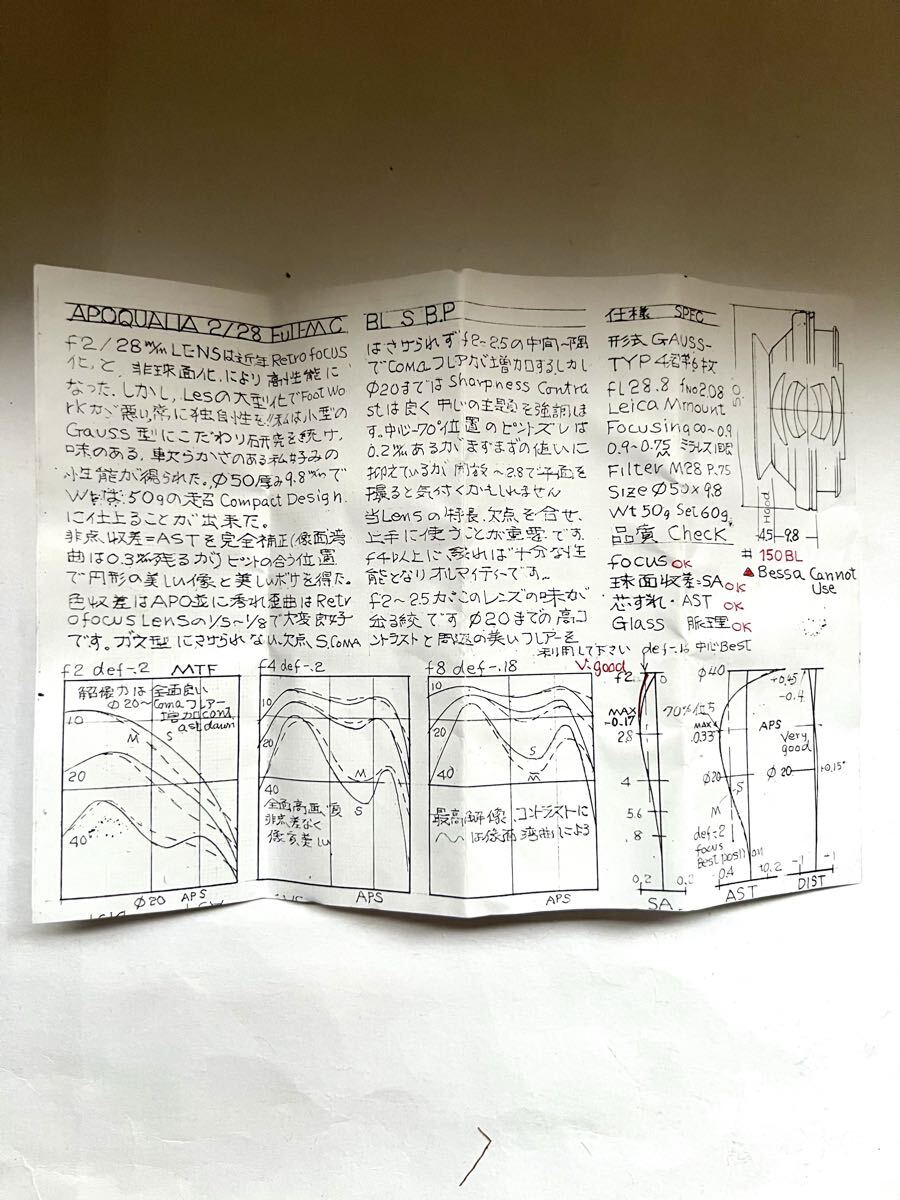 APOQUALIA 2/28 Full-M C
f2/28m/m LENSは近年Retrofocus
化,と、非球面化,により高性能に
なった.しかし,Lesの大型化でFoot Wo
rkが悪い,常に独自性を!!私は小型の
Gauss 型にこだわり研究を続け,
味のある,軟らかさのある私好みの
性能が得られた。Φ50厚み9.8m/mで
Wt 50gの超 Compact Design.
に仕上ることが出来た。
非点収差=ASTを完全補正(像面湾
曲は0.3m/m残るが)ピントの合う位置
で円形の美しい像と美しボケを得た。
色収差はAPO並に秀れ歪曲はRetr
ofocus Lensの1/5~1/8で大変良好
です。ガウス型にさけられない欠点 S.COMA
BL S B.P
はさけられずf2~2.5の中間~隅
でComaフレアが増加するしかし
Φ20まではSharpness Contra
stは良く中心の主題を強調しま
す.中心-70%位置のピントズレは
0.2m/mあるがまずまずの値いに
抑えているが開放~2.8で平面を
撮ると気付くかもしれません
当Lensの特長、欠点を合せ、
上手に使うことが重要です.
f4以上に絞れば十分な性
能となりオルマイティーです...
f2~2.5がこのレンズの味が
出る絞です Φ20までの高コ
ントラストと周辺の美いフレアーを
利用して下さい
仕様 SPEC
形式 GAUSS-
TYP 4群6枚
fL 28.8 fNO 2.08
Leica M mount
Focusing ∞~0.9
0.9~0.75
Filter M28 P.75
Size Φ50×9.8
Wt 50g Set 60g
品質 Check
focus OK
球面収差=SA OK
芯ずれ・AST OK
Glass 脈理 OK
Hood
4.5 9.8
# 150BL
▲Bessa Cannot
Use
f2 def-.2 MTF
解像力は全面良い
Φ20~Comaフレアー
増加 cont
ast down
10
M S
20
40
Φ20 APS
f4 def-.2
10
20
M
S
40
全面高画質
非点差なく
像が美しい
APS
f8 def-.18
10
20
S
M
40
最高解像、コントラストに
は像面湾曲による
APS
V.good
def-.16 中心Best
f2 0
MAX
-0.17
2.8
4
5.6
8
0.2 0.2
SA
Φ40
70%位
MAX
.033
Φ20
S
M
def-2
focus
Best position
0.4 +0.2
AST
+0.45
-0.4
APS
Very
good
Φ20
+0.15°
-1 1
DIST